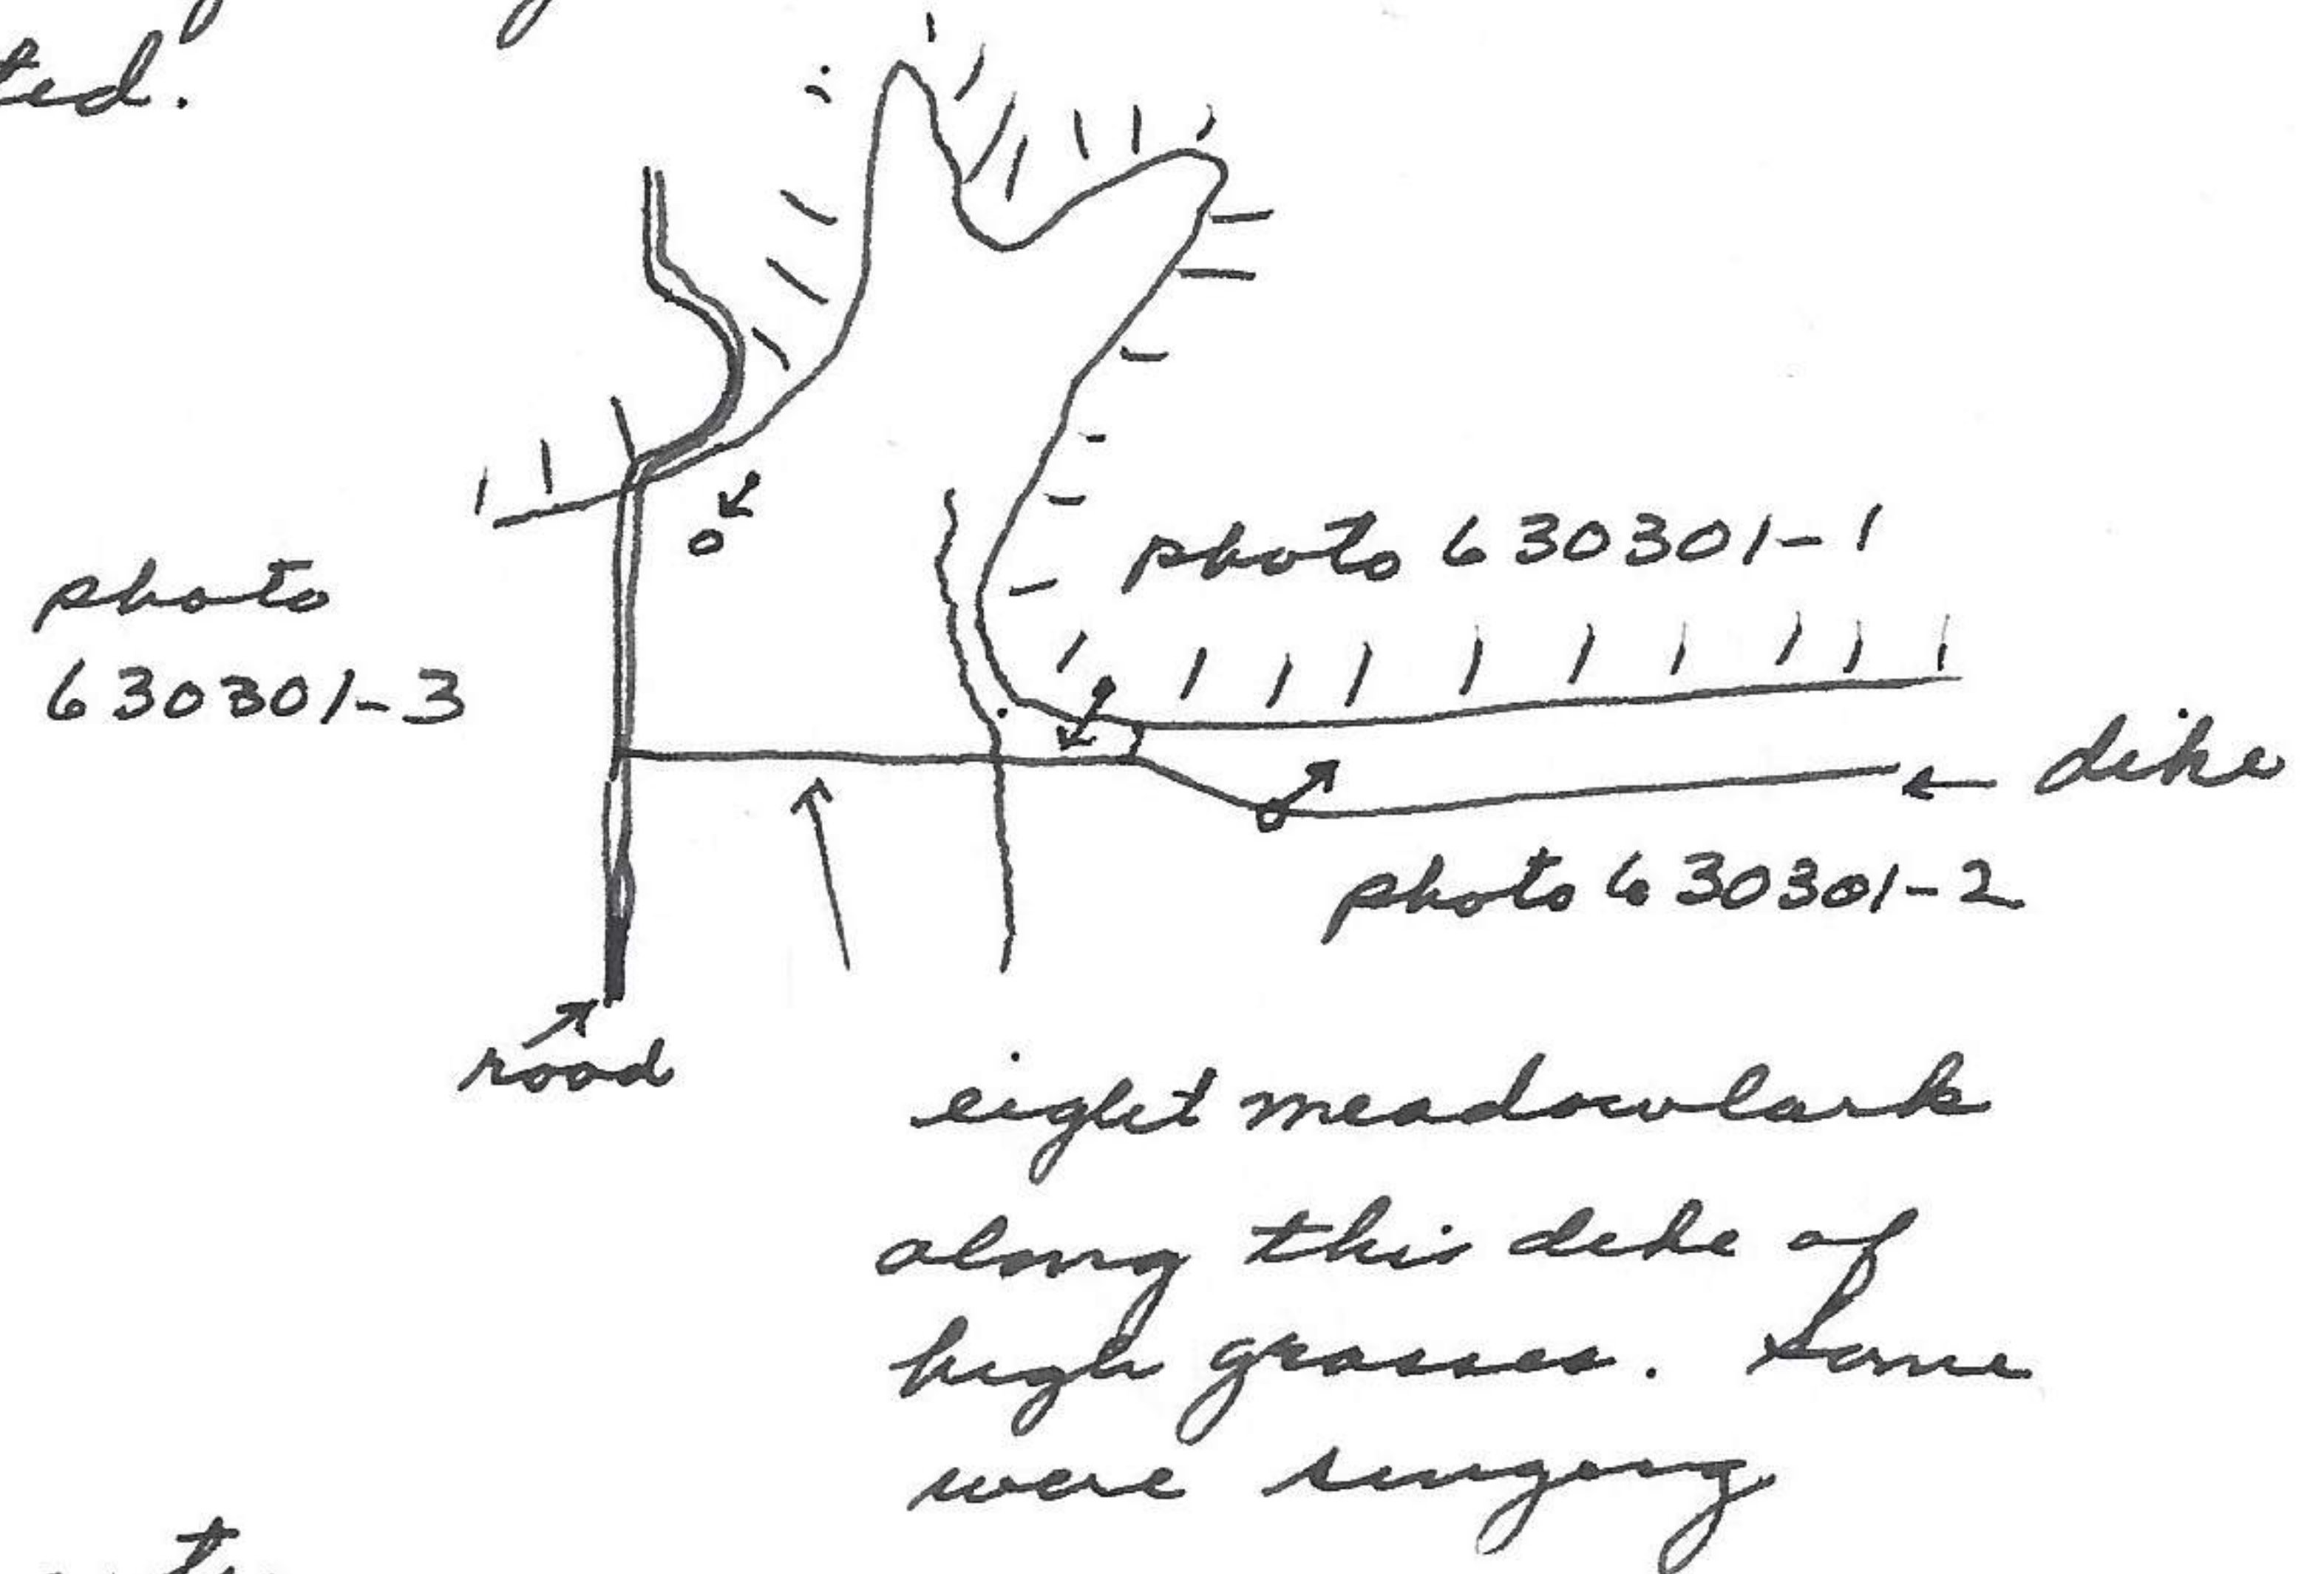 ted.
photo 630301-1
photo
630301-3
dike
photo 630301-2
road
eight meadowlark
along this dike of
high grasses. Some
were singing